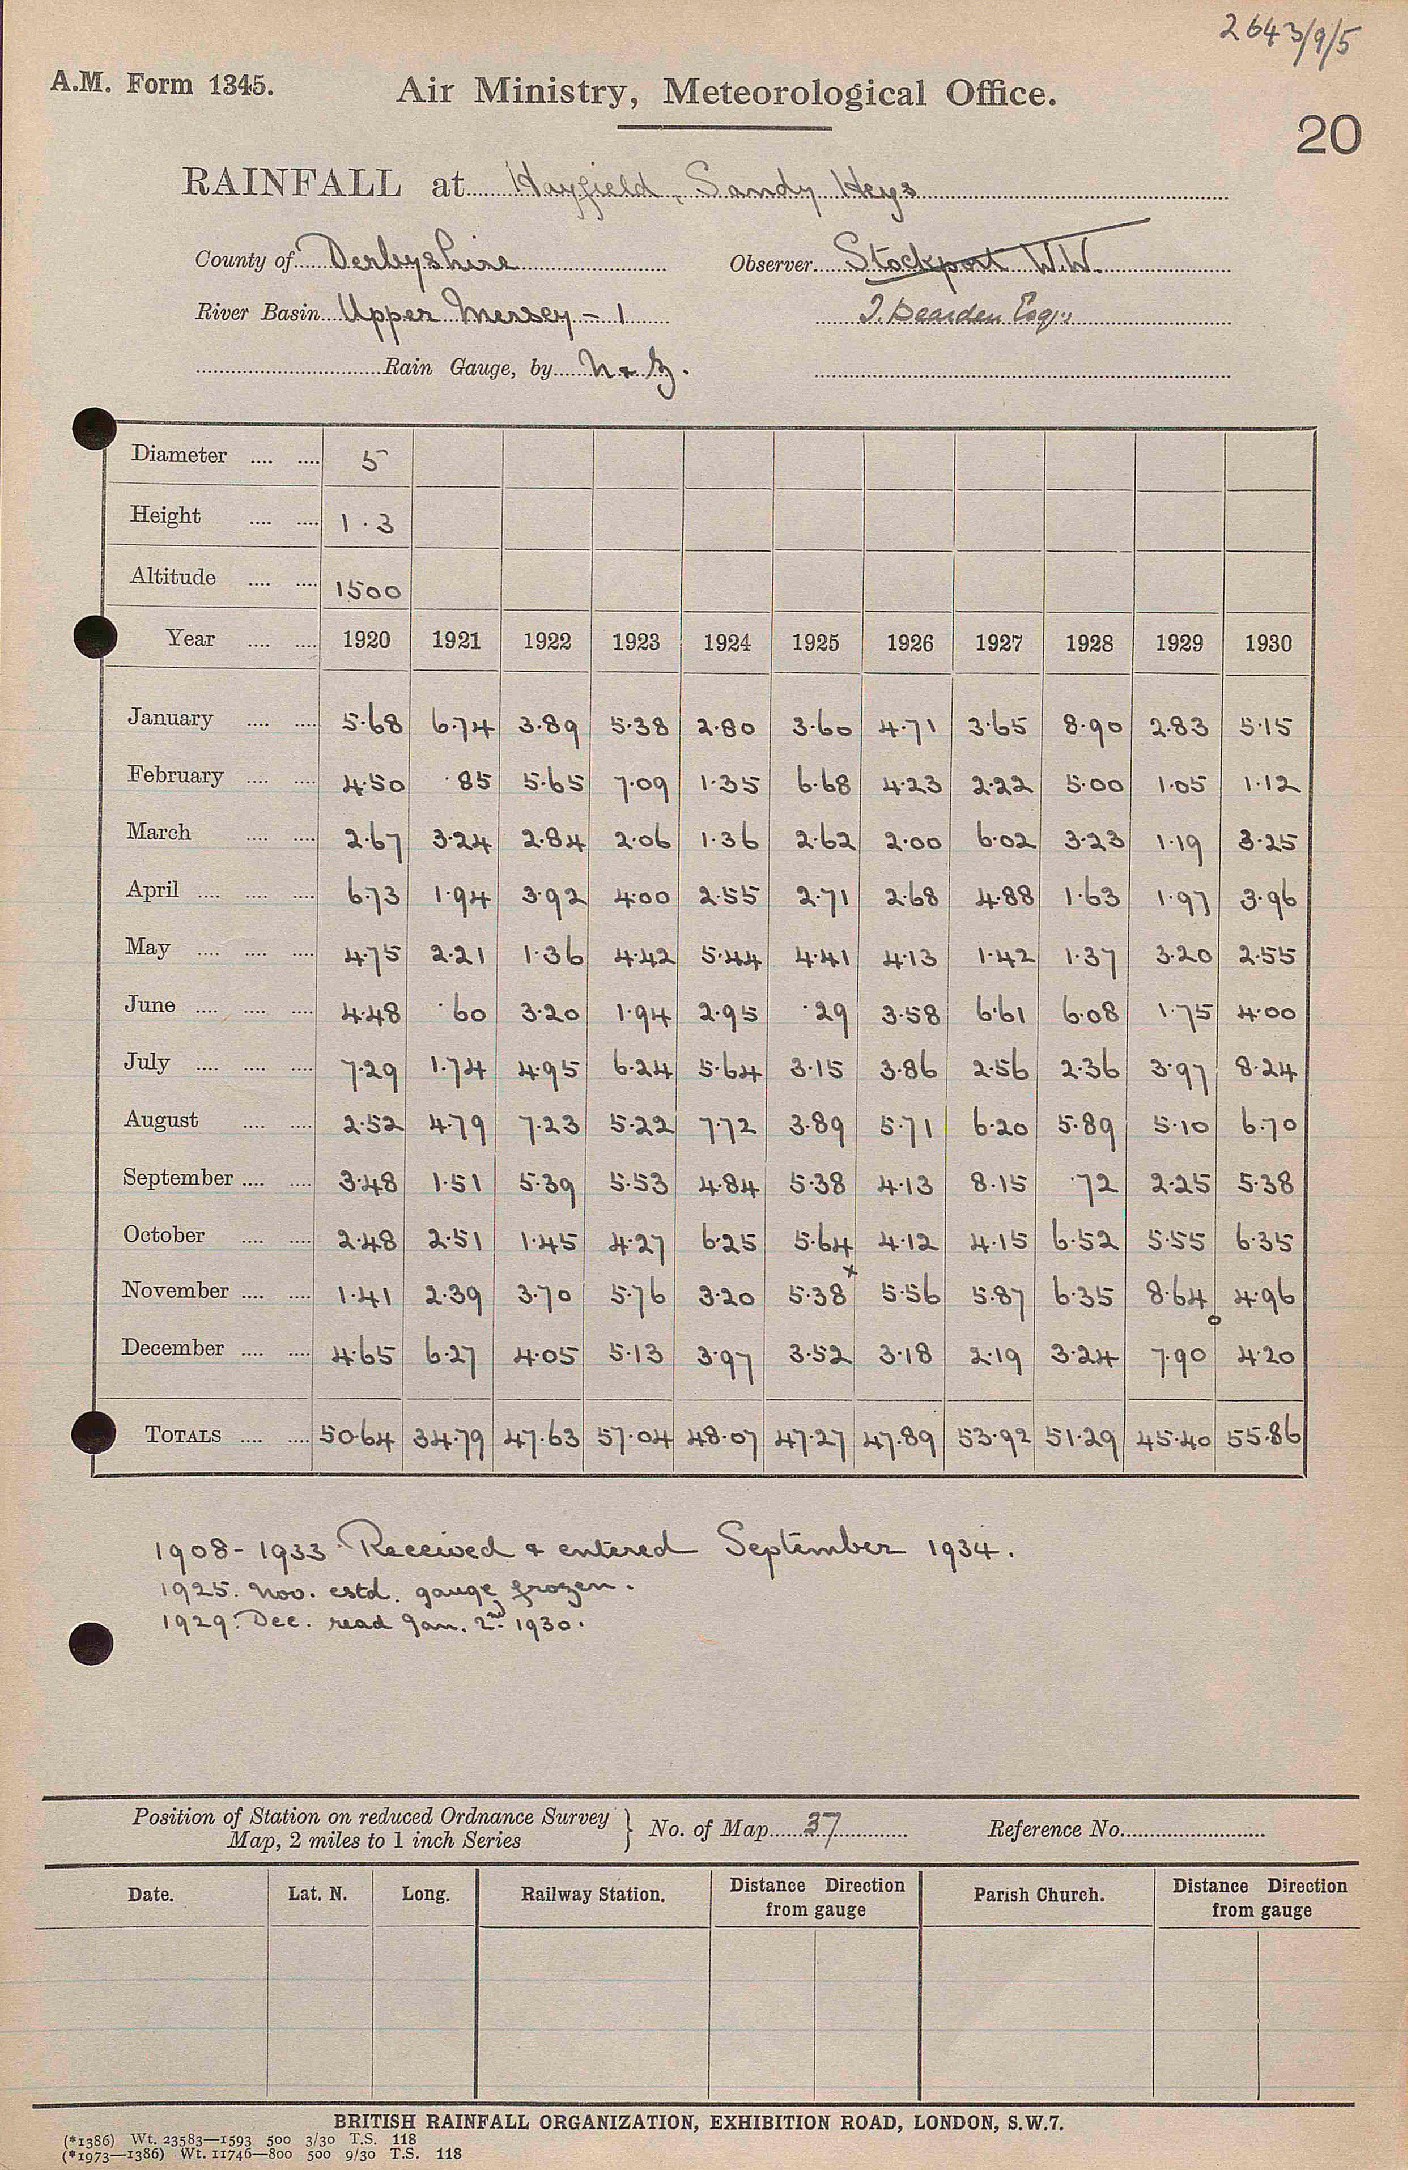 2643/9/5
A.M. Form 1345.
Air Ministry, Meteorological Office.
20
RAINFALL at Hayfield, Sandy Heys
County of Derbyshire Observer Stockport W.W.
River Basin Upper Mersey - 1 J. Bearden Esqr.
Rain Gauge, by N & Z.
Diameter .... .... 5
Height .... .... 1.3
Altitude .... .... 1500
Year .... .... 1920 1921 1922 1923 1924 1925 1926 1927 1928 1929 1930
January .... .... 5.68 6.74 3.89 5.38 2.80 3.60 4.71 3.65 8.90 2.83 5.15
February .... .... 4.50 .85 5.65 7.09 1.35 6.68 4.23 2.22 5.00 1.05 1.12
March .... .... 2.67 3.24 2.84 2.06 1.36 2.62 2.00 6.02 3.23 1.19 3.25
April .... .... .... 6.73 1.94 3.92 4.00 2.55 2.71 2.68 4.88 1.63 1.97 3.96
May .... .... .... 4.75 2.21 1.36 4.42 5.44 4.41 4.13 1.42 1.37 3.20 2.55
June .... .... .... 4.48 .60 3.20 1.94 2.95 .29 3.58 6.61 6.08 1.75 4.00
July .... .... .... 7.29 1.74 4.95 6.24 5.64 3.15 3.86 2.56 2.36 3.97 8.24
August .... .... 2.52 4.79 7.23 5.22 7.72 3.89 5.71 6.20 5.89 5.10 6.70
September .... .... 3.48 1.51 5.39 5.53 4.84 5.38 4.13 8.15 .72 2.25 5.38
October .... .... 2.48 2.51 1.45 4.27 6.25 5.64 4.12 4.15 6.52 5.55 6.35
November .... .... 1.41 2.39 3.70 5.76 3.20 5.38x 5.56 5.87 6.35 8.64 4.96
December .... .... 4.65 6.27 4.05 5.13 3.97 3.52 3.18 2.19 3.24 7.90o 4.20
TOTALS .... .... 50.64 34.79 47.63 57.04 48.07 47.27 47.89 53.92 51.29 45.40 55.86
1908-1933 Received & entered September 1934.
1925. Nov. estd. gauge frozen.
1929. Dec. read Jan. 2nd 1930.
Position of Station on reduced Ordnance Survey
Map, 2 miles to 1 inch Series } No. of Map 37 Reference No.
Date. Lat. N. Long. Railway Station. Distance Direction from gauge Parish Church. Distance Direction from gauge
BRITISH RAINFALL ORGANIZATION, EXHIBITION ROAD, LONDON, S.W.7.
(*1386) Wt. 23583—1593 500 3/30 T.S. 118
(*1973—1386) Wt. 11746—800 500 9/30 T.S. 118